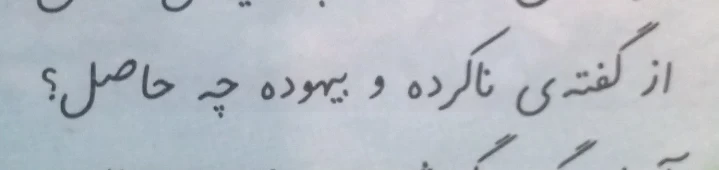 از گفته‌ی ناکرده و بیهوده چه حاصل؟